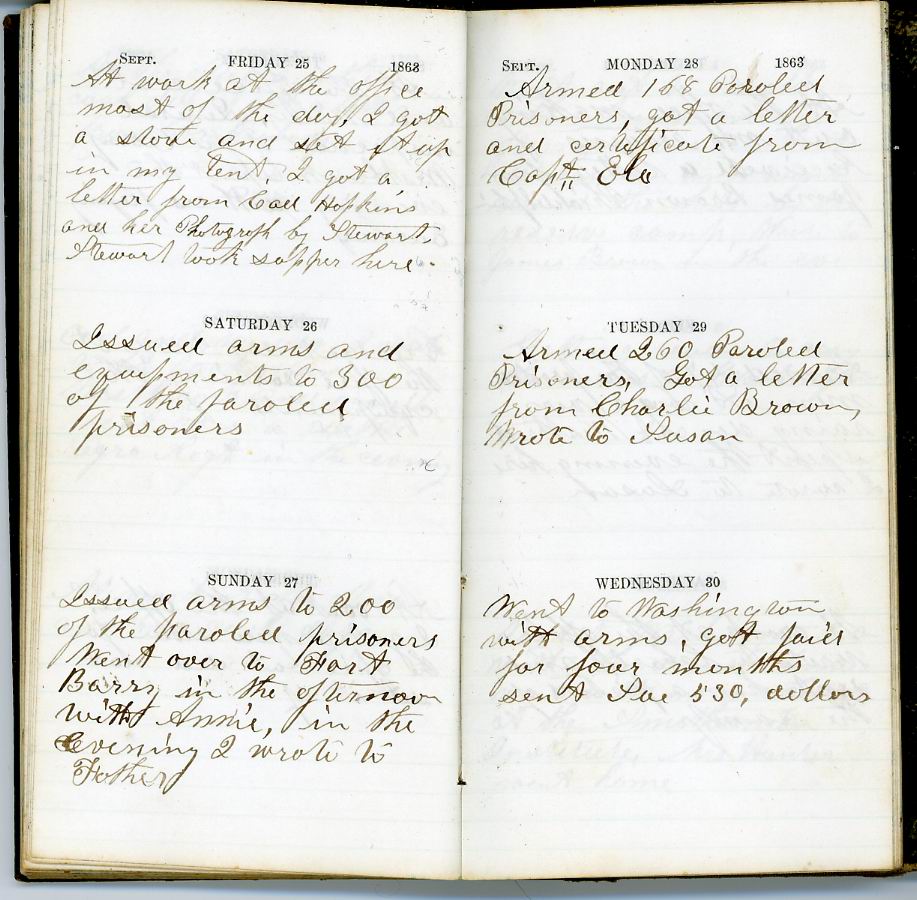 SEPT. FRIDAY 25 1863
At work at the office
most of the day, I got
a stove and set it up
in my tent I got a
letter from Hopkins
and her Photograph by Stewart,
Stewart took supper here.
SATURDAY 26
Issued arms and
equipments to 300
of the paroled
prisoners
SUNDAY 27
Issued arms to 200
of the paroled prisoners
Went over to Fort
Barry in the afternoon
with Annie, in the
Evening I wrote to
Father
SEPT. MONDAY 28 1863
Armed 168 Paroled
Prisoners, got a letter
and certificate from
Capt. Ela
TUESDAY 29
Armed 260 Paroled
Prisoners, Got a letter
from Charlie Brown,
Wrote to Susan
WEDNESDAY 30
Went to Washington
with arms, got paid
for four months
sent 530, dollars